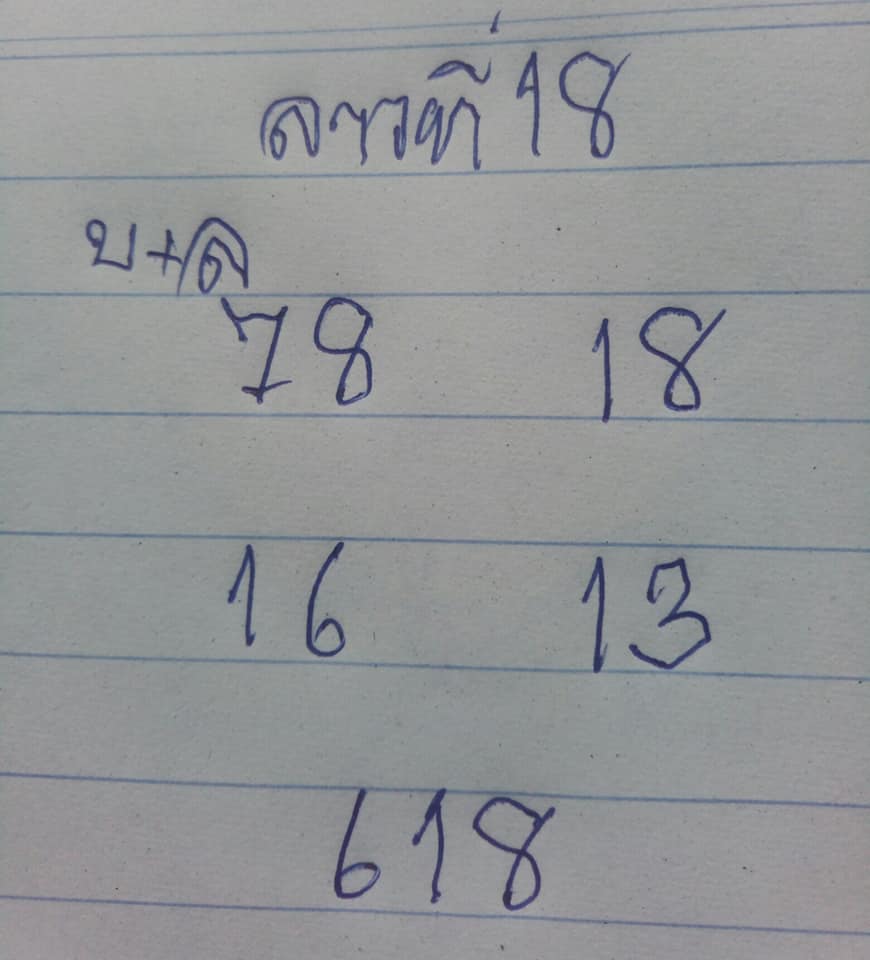 ลาวที่ 18
บ+ล
78 18
16 13
618